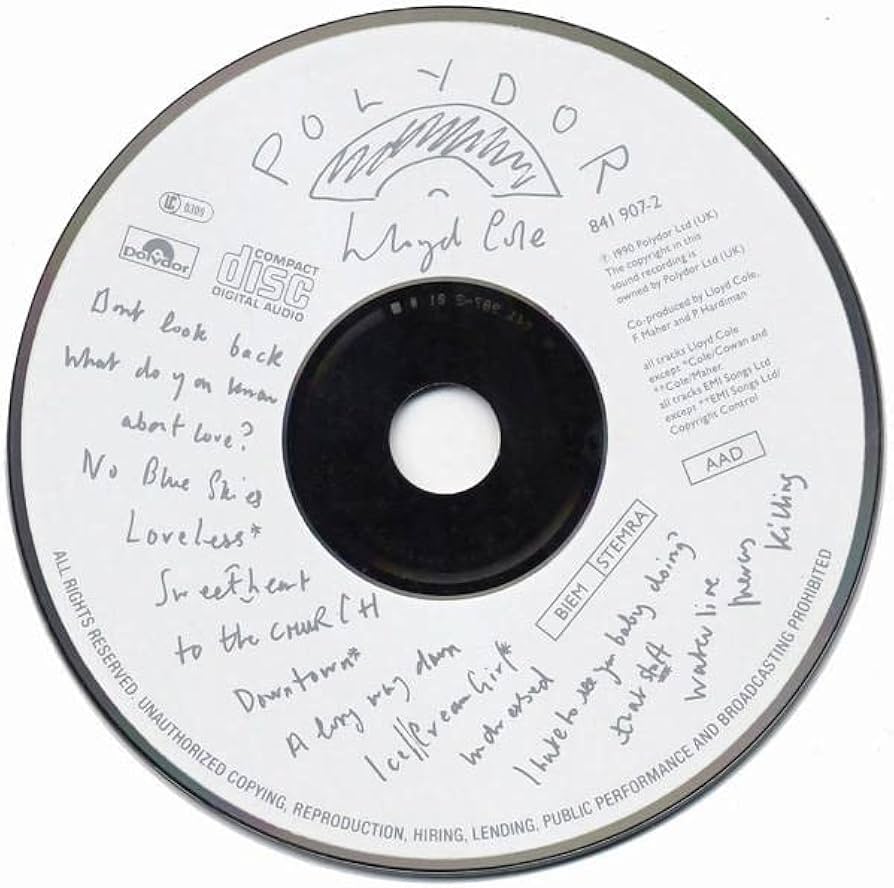 POLYDOR
Lloyd Cole
LC 0309
Polydor
COMPACT
disc
DIGITAL AUDIO
841 907-2
℗ 1990 Polydor Ltd (UK)
The copyright in this
sound recording is
owned by Polydor Ltd (UK)
Co-produced by Lloyd Cole,
F. Maher and P. Hardiman
all tracks Lloyd Cole
except *Cole/Cowan and
**Cole/Maher.
all tracks EMI Songs Ltd
except **EMI Songs Ltd/
Copyright Control
AAD
BIEM STEMRA
Dont look back
What do you know
about love?
No Blue Skies
Loveless*
Sweetheart
to the CHURCH
Downtown*
A long way down
Ice Cream Girl*
undressed
I hate to see you baby doing
that stuff
waterline
mercy
killing
ALL RIGHTS RESERVED. UNAUTHORIZED COPYING, REPRODUCTION, HIRING, LENDING, PUBLIC PERFORMANCE AND BROADCASTING PROHIBITED